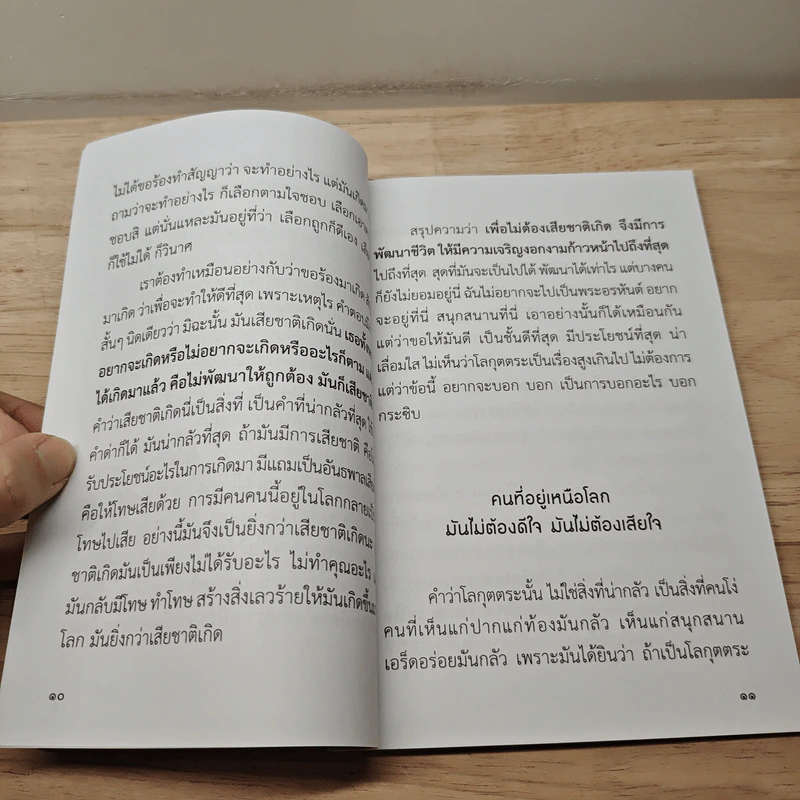 ไม่ได้ขอร้องทำสัญญาว่า จะทำอย่างไร แต่มันเกิด
ถามว่าจะทำอย่างไร ก็เลือกตามใจชอบ
ชอบสิ แต่นั่นแหละมันอยู่ที่ว่า เลือกถูกก็ดีเอง
ก็ใช้ไม่ได้ ก็วินาศ
เราต้องทำเหมือนอย่างกับว่าขอร้องมาเกิด
มาเกิด ว่าเพื่อจะทำให้ดีที่สุด เพราะเหตุไร
สั้นๆ นิดเดียวว่า มิฉะนั้น มันเสียชาติเกิดนั่น
อยากจะเกิดหรือไม่อยากจะเกิดหรืออะไรก็ตาม
ได้เกิดมาแล้ว คือไม่พัฒนาให้ถูกต้อง มันก็เสีย
คำว่าเสียชาติเกิดนี่เป็นสิ่งที่ เป็นคำที่น่ากลัวที่สุด
คำด่าก็ได้ มันน่ากลัวที่สุด ถ้ามันมีการเสียชาติ
รับประโยชน์อะไรในการเกิดมา มีแถมเป็นอันธพาล
คือให้โทษเสียด้วย การมีคนคนนี้อยู่ในโลกกลาย
โทษไปเสีย อย่างนี้มันจึงเป็นยิ่งกว่าเสียชาติเกิดนะ
ชาติเกิดมันเป็นเพียงไม่ได้รับอะไร ไม่ทำคุณอะไร
มันกลับมีโทษ ทำโทษ สร้างสิ่งเลวร้ายให้มันเกิดขึ้น
โลก มันยิ่งกว่าเสียชาติเกิด
๑๐
สรุปความว่า เพื่อไม่ต้องเสียชาติเกิด จึงมีการ
พัฒนาชีวิต ให้มีความเจริญงอกงามก้าวหน้าไปถึงที่สุด
ไปถึงที่สุด สุดที่มันจะเป็นไปได้ พัฒนาได้เท่าไร แต่บางคน
ก็ยังไม่ยอมอยู่นี่ ฉันไม่อยากจะไปเป็นพระอรหันต์ อยาก
จะอยู่ที่นี่ สนุกสนานที่นี่ เอาอย่างนั้นก็ได้เหมือนกัน
แต่ว่าขอให้มันดี เป็นชั้นดีที่สุด มีประโยชน์ที่สุด น่า
เลื่อมใส ไม่เห็นว่าโลกุตตระเป็นเรื่องสูงเกินไป ไม่ต้องการ
แต่ว่าข้อนี้ อยากจะบอก บอก เป็นการบอกอะไร บอก
กระซิบ
คนที่อยู่เหนือโลก
มันไม่ต้องดีใจ มันไม่ต้องเสียใจ
คำว่าโลกุตตระนั้น ไม่ใช่สิ่งที่น่ากลัว เป็นสิ่งที่คนโง่
คนที่เห็นแก่ปากแก่ท้องมันกลัว เห็นแก่สนุกสนาน
เอร็ดอร่อยมันกลัว เพราะมันได้ยินว่า ถ้าเป็นโลกุตตระ
๑๑